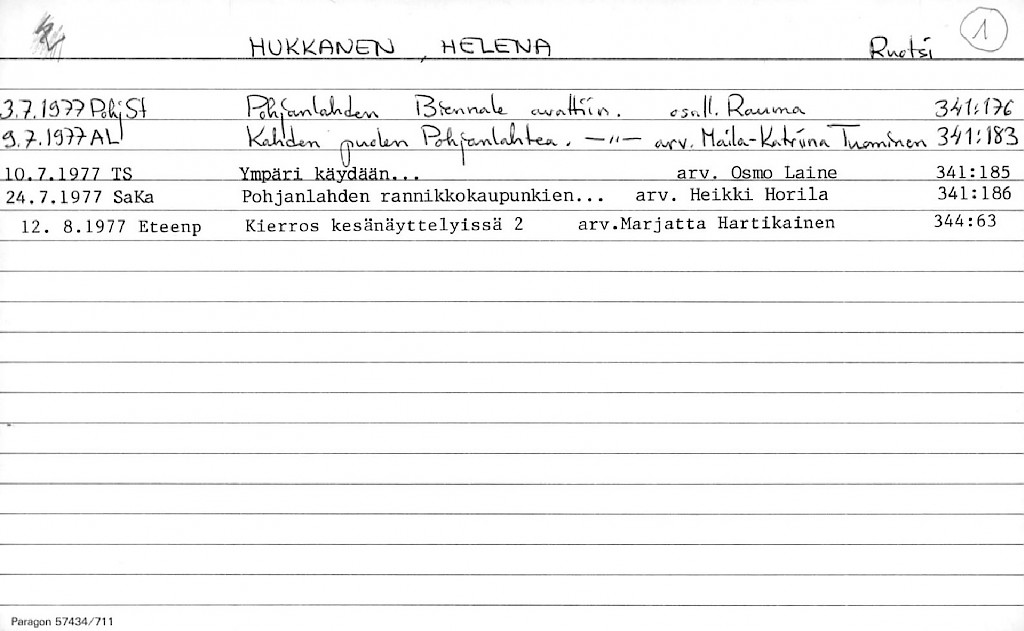 HUKKANEN, HELENA Ruotsi 1
3.7.1977 PohjSt Pohjanlahden Biennale avattiin. osall. Rauma 341:176
9.7.1977 AL Kahden puolen Pohjanlahtea. —"— arv. Maila-Katriina Tuominen 341:183
10.7.1977 TS Ympäri käydään... arv. Osmo Laine 341:185
24.7.1977 SaKa Pohjanlahden rannikkokaupunkien... arv. Heikki Horila 341:186
12. 8.1977 Eteenp Kierros kesänäyttelyissä 2 arv.Marjatta Hartikainen 344:63
Paragon 57434/711